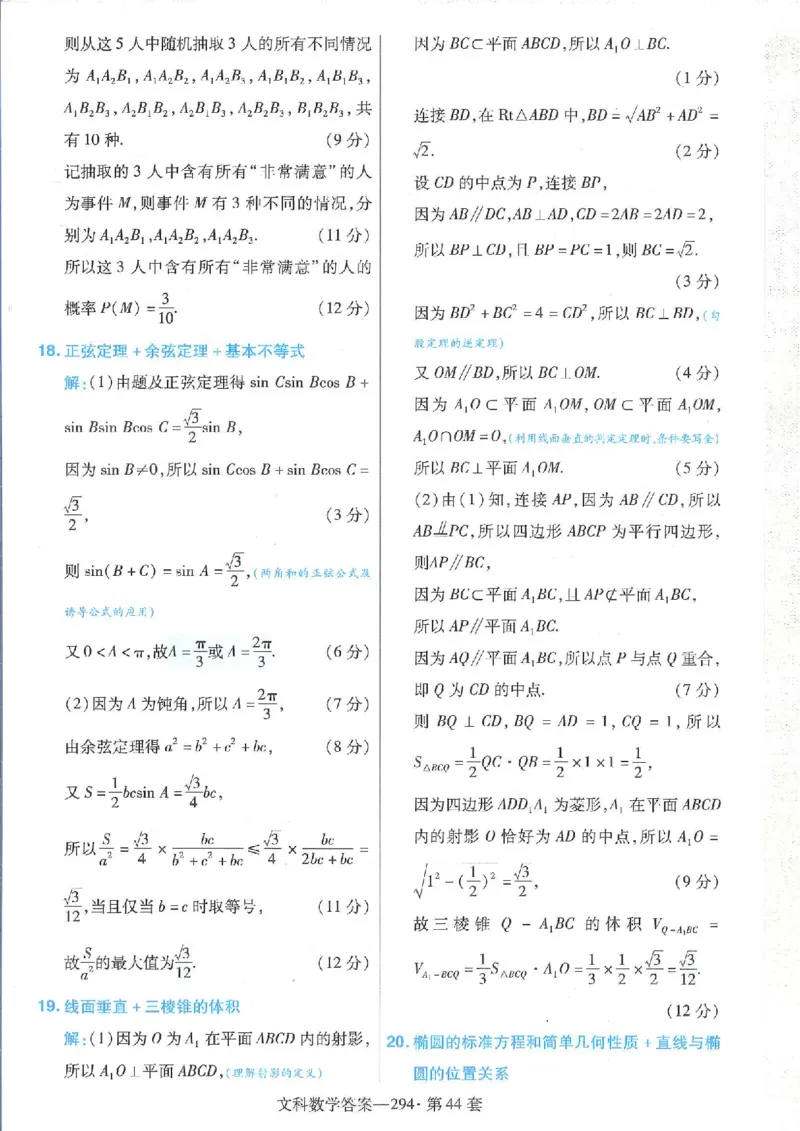 则从这5人中随机抽取3人的所有不同情况
为 A₁A₂B₁,A₁A₂B₂,A₁A₂B₃,A₁B₁B₂,A₁B₁B₃,
A₁B₂B₃,A₂B₁B₂,A₂B₁B₃,A₂B₂B₃,B₁B₂B₃,共
有10种. (9分)
记抽取的3人中含有所有“非常满意”的人
为事件M,则事件M有3种不同的情况,分
别为A₁A₂B₁,A₁A₂B₂,A₁A₂B₃. (11分)
所以这3人中含有所有“非常满意”的人的
概率P(M)=3/10. (12分)
18.正弦定理+余弦定理+基本不等式
解:(1)由题及正弦定理得 sin Csin Bcos B+
sin Bsin Bcos C=√3/2 sin B,
因为 sin B≠0,所以 sin Ccos B+sin Bcos C=
√3/2, (3分)
则 sin(B+C)=sin A=√3/2,(两角和的正弦公式及
诱导公式的应用)
又0<A<π,故A=π/3或A=2π/3. (6分)
(2)因为A为钝角,所以A=2π/3, (7分)
由余弦定理得a²=b²+c²+bc, (8分)
又S=1/2 bcsin A=√3/4 bc,
所以S/a²=√3/4×bc/(b²+c²+bc)≤√3/4×bc/(2bc+bc)=
√3/12,当且仅当b=c时取等号, (11分)
故S/a²的最大值为√3/12. (12分)
19.线面垂直+三棱锥的体积
解:(1)因为O为A₁在平面ABCD内的射影,
所以A₁O⊥平面ABCD,(理解射影的定义)
因为BC⊂平面ABCD,所以A₁O⊥BC.
(1分)
连接BD,在Rt△ABD中,BD=√(AB²+AD²)=
√2. (2分)
设CD的中点为P,连接BP,
因为AB∥DC,AB⊥AD,CD=2AB=2AD=2,
所以BP⊥CD,且BP=PC=1,则BC=√2.
(3分)
因为BD²+BC²=4=CD²,所以BC⊥BD,(勾
股定理的逆定理)
又OM∥BD,所以BC⊥OM. (4分)
因为A₁O⊂平面A₁OM,OM⊂平面A₁OM,
A₁O∩OM=O,(利用线面垂直的判定定理时,条件要写全)
所以BC⊥平面A₁OM. (5分)
(2)由(1)知,连接AP,因为AB∥CD,所以
AB⊥∥PC,所以四边形ABCP为平行四边形,
则AP∥BC,
因为BC⊂平面A₁BC,且AP⊄平面A₁BC,
所以AP∥平面A₁BC.
因为AQ∥平面A₁BC,所以点P与点Q重合,
即Q为CD的中点. (7分)
则BQ⊥CD,BQ=AD=1,CQ=1,所以
S△BCQ=1/2 QC·QB=1/2×1×1=1/2,
因为四边形ADD₁A₁为菱形,A₁在平面ABCD
内的射影O恰好为AD的中点,所以A₁O=
√(1²-(1/2)²)=√3/2, (9分)
故三棱锥Q-A₁BC的体积V_{Q-A₁BC}=
V_{A₁-BCQ}=1/3 S△BCQ·A₁O=1/3×1/2×√3/2=√3/12.
(12分)
20.椭圆的标准方程和简单几何性质+直线与椭
圆的位置关系
文科数学答案—294·第44套